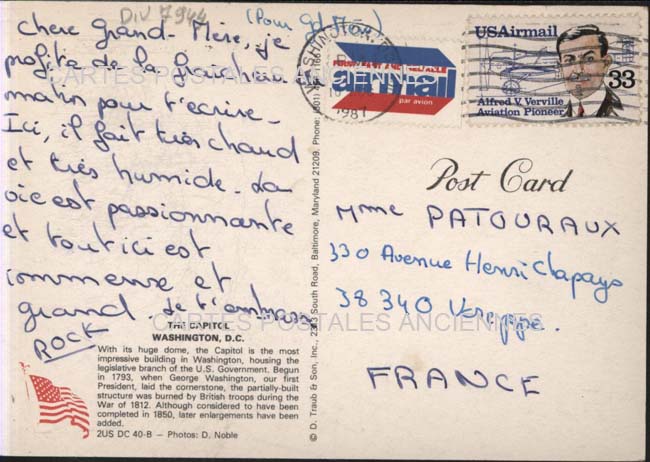 DIV 7944
(Pour
Chère Grand-Mère, je
profite de la fraicheur
matin pour t'écrire.
Ici, il fait très chaud
et très humide. La
vie est passionnante
et tout ici est
immense et
grand. Je t'embrasse
ROCK
THE CAPITOL
WASHINGTON, D.C.
With its huge dome, the Capitol is the most
impressive building in Washington, housing the
legislative branch of the U.S. Government. Begun
in 1793, when George Washington, our first
President, laid the cornerstone, the partially-built
structure was burned by British troops during the
War of 1812. Although considered to have been
completed in 1850, later enlargements have been
added.
2US DC 40-B - Photos: D. Noble
© D. Traub & Son, Inc., South Road, Baltimore, Maryland 21209. Phone: (301)
WASHINGTON
1987
air mail
par avion
USAirmail
33
Alfred V. Verville
Aviation Pioneer
Post Card
Mme PATOURAUX
330 Avenue Henri Chapays
38 340 Voreppe.
FRANCE
CARTES POSTALES ANCIENNES
CARTES POSTALES ANCIENNES